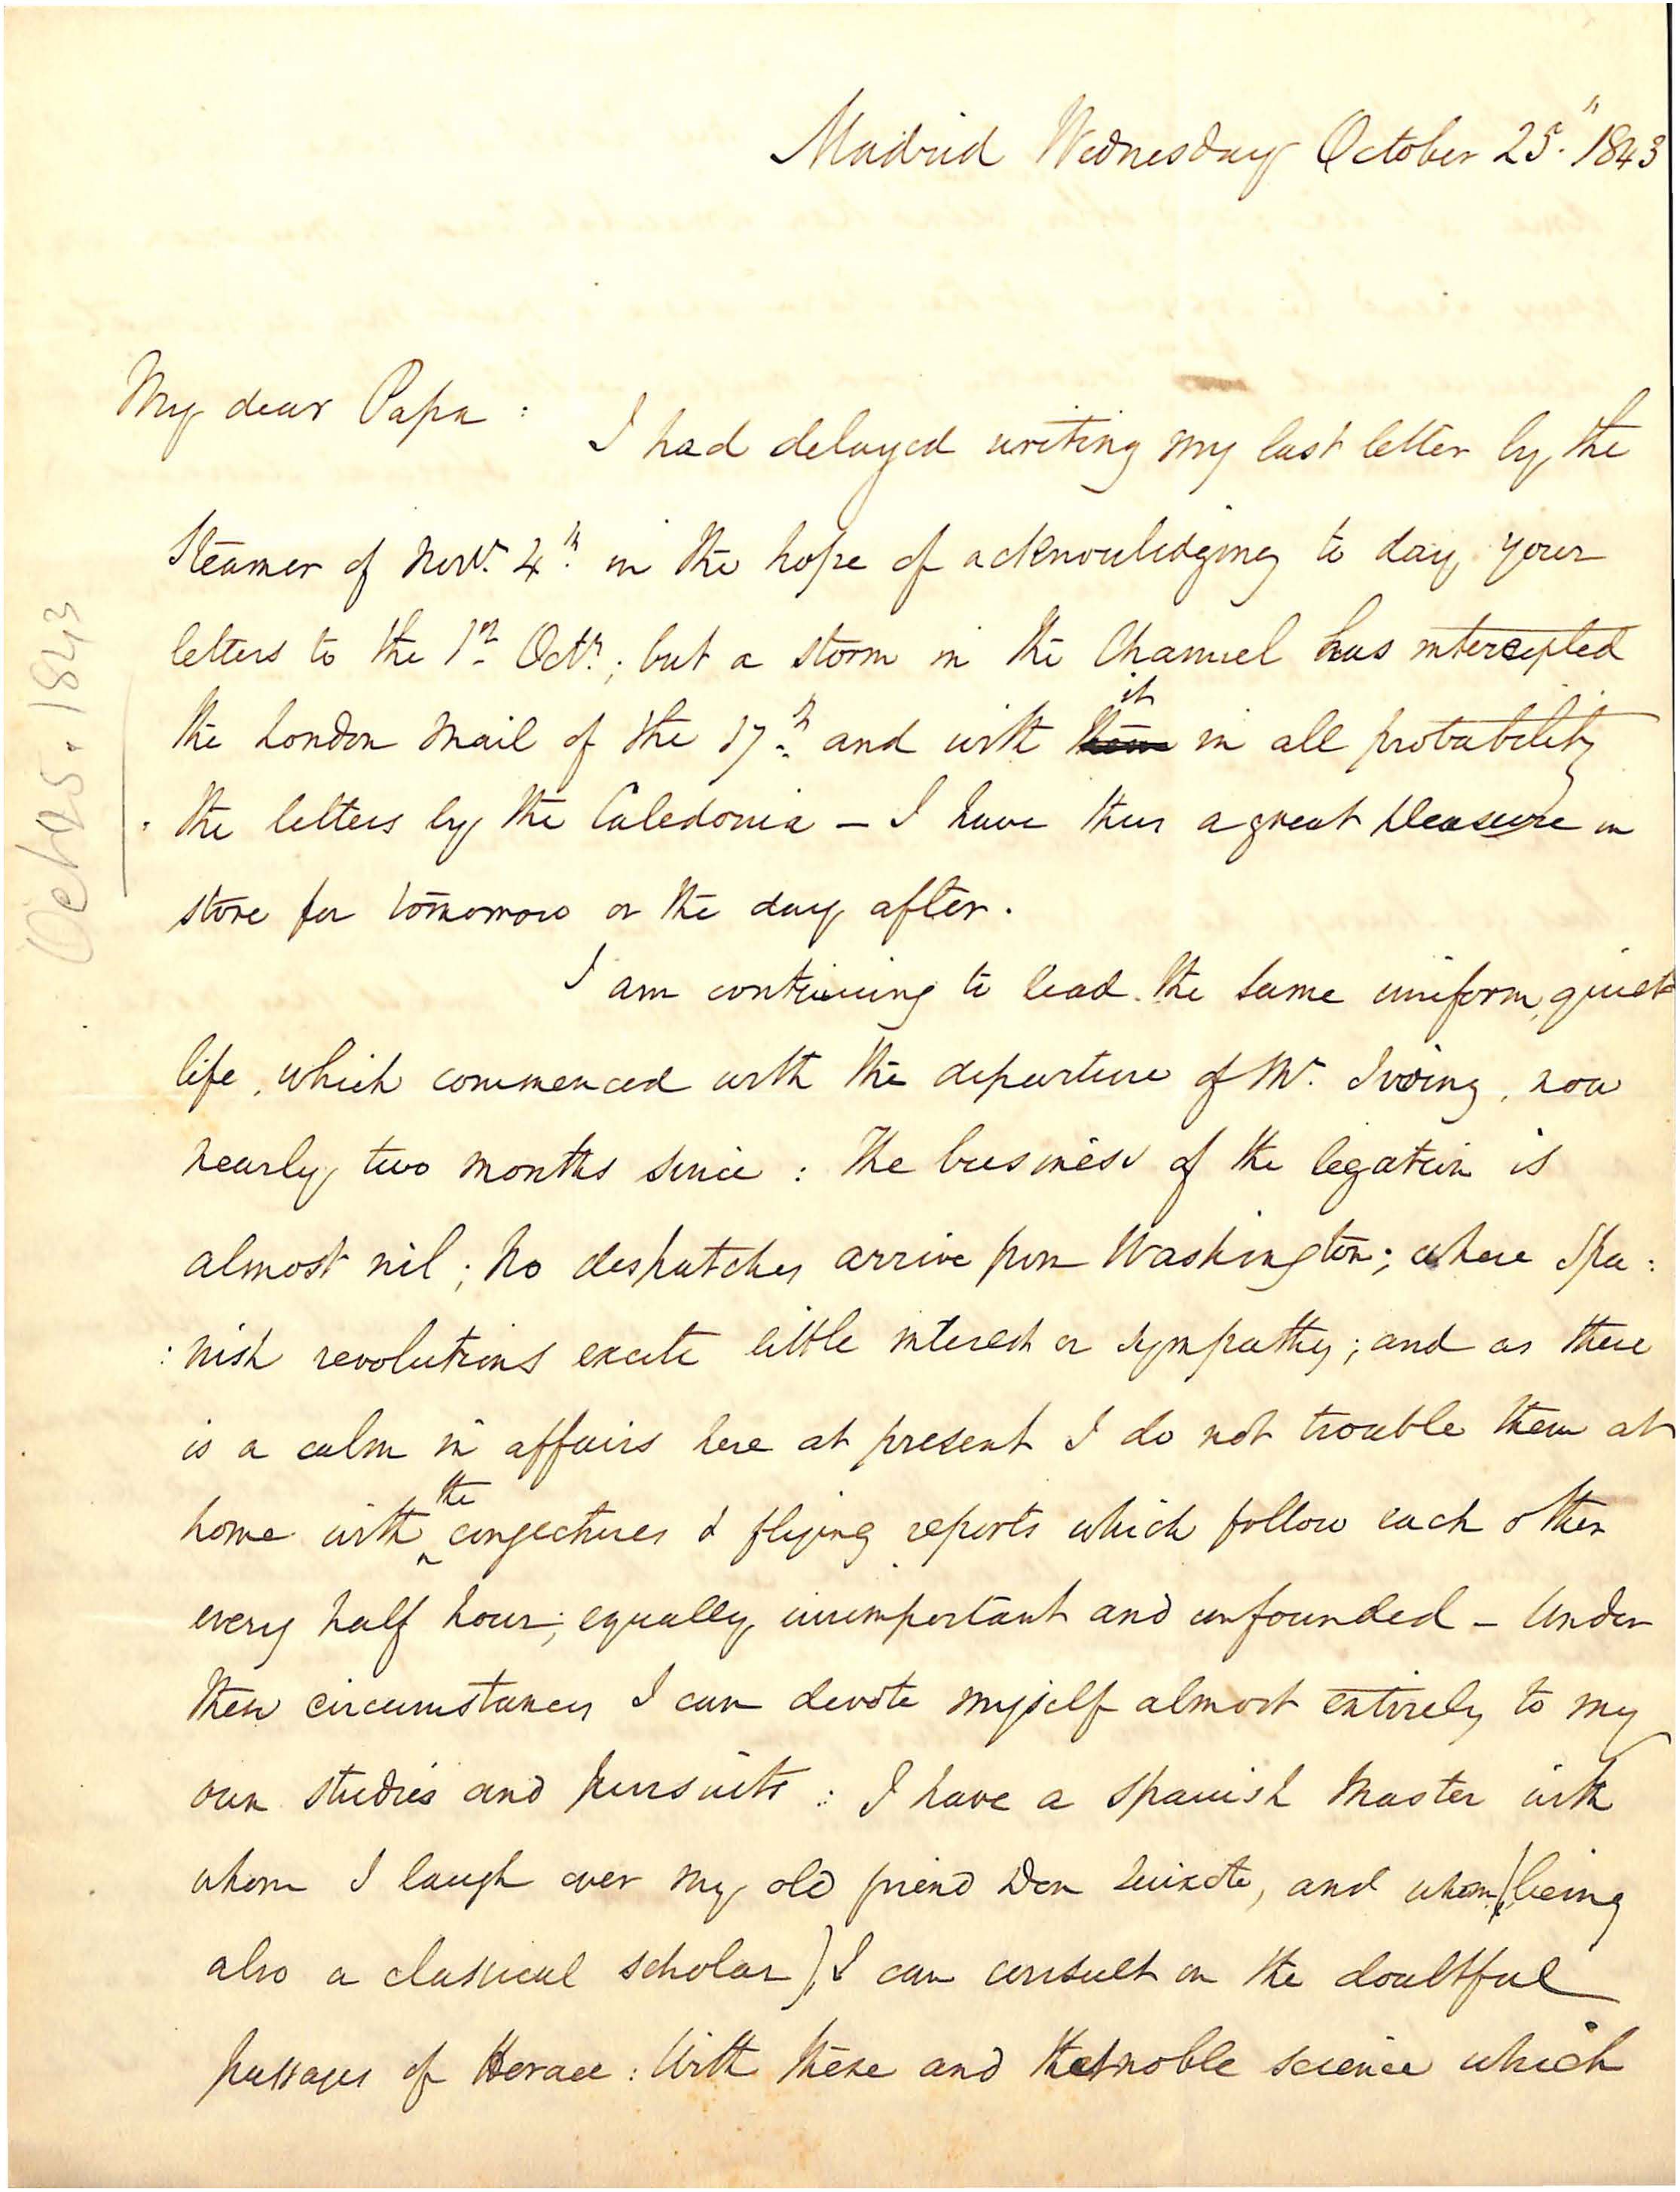 Madrid Wednesday October 25th 1843
My dear Papa :
I had delayed writing my last letter by the
Steamer of Novr. 4th in the hope of acknowledging to day your
letters to the 1st Octr.; but a storm in the Channel has intercepted
it
the London Mail of the 17th and with them in all probability
the letters by the Caledonia – I have thus a great pleasure in
store for tomorrow or the day after.
I am continuing to lead the same uniform, quiet
life, which commenced with the departure of Mr. Irving, now
nearly two months since : The business of the legation is
almost nil ; no despatches arrive from Washington; where Spa:
:nish revolutions excite little interest or sympathy ; and as there
is a calm in affairs here at present I do not trouble them at
the
home with ^ conjectures & flying reports which follow each other
every half hour; equally unimportant and unfounded – Under
these circumstances I can devote myself almost entirely to my
own studies and pursuits : I have a Spanish Master with
whom I laugh over my old friend Don Quixote, and whom (being
also a classical scholar) I can consult on the doubtful
passages of Horace : With these and that noble science which
Oct 25. 1843